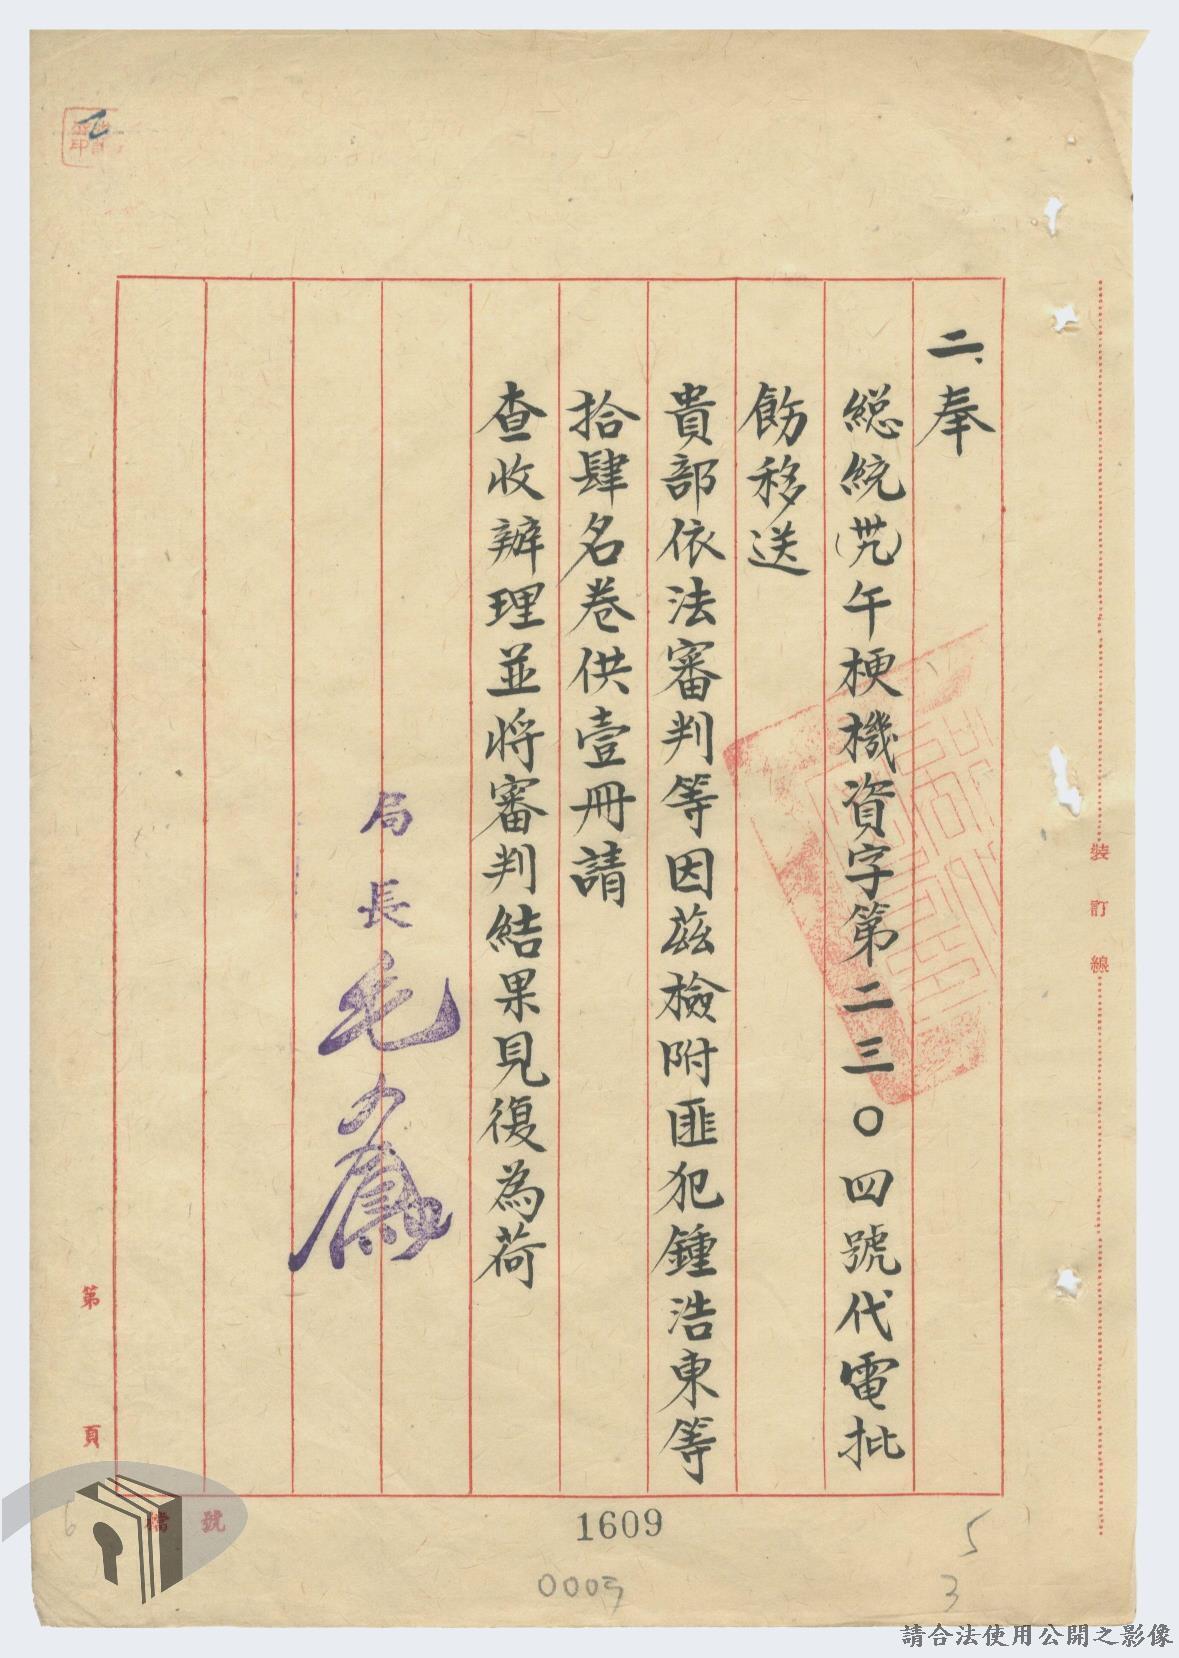 二、奉
總統(艽)午梗機資字第二三〇四號代電批
飭移送
貴部依法審判等因茲檢附匪犯鍾浩東等
拾肆名卷供壹冊請
查收辦理並將審判結果見復為荷
局長毛
裝訂線
第 頁
檔號
1609
5
3
6
請合法使用公開之影像